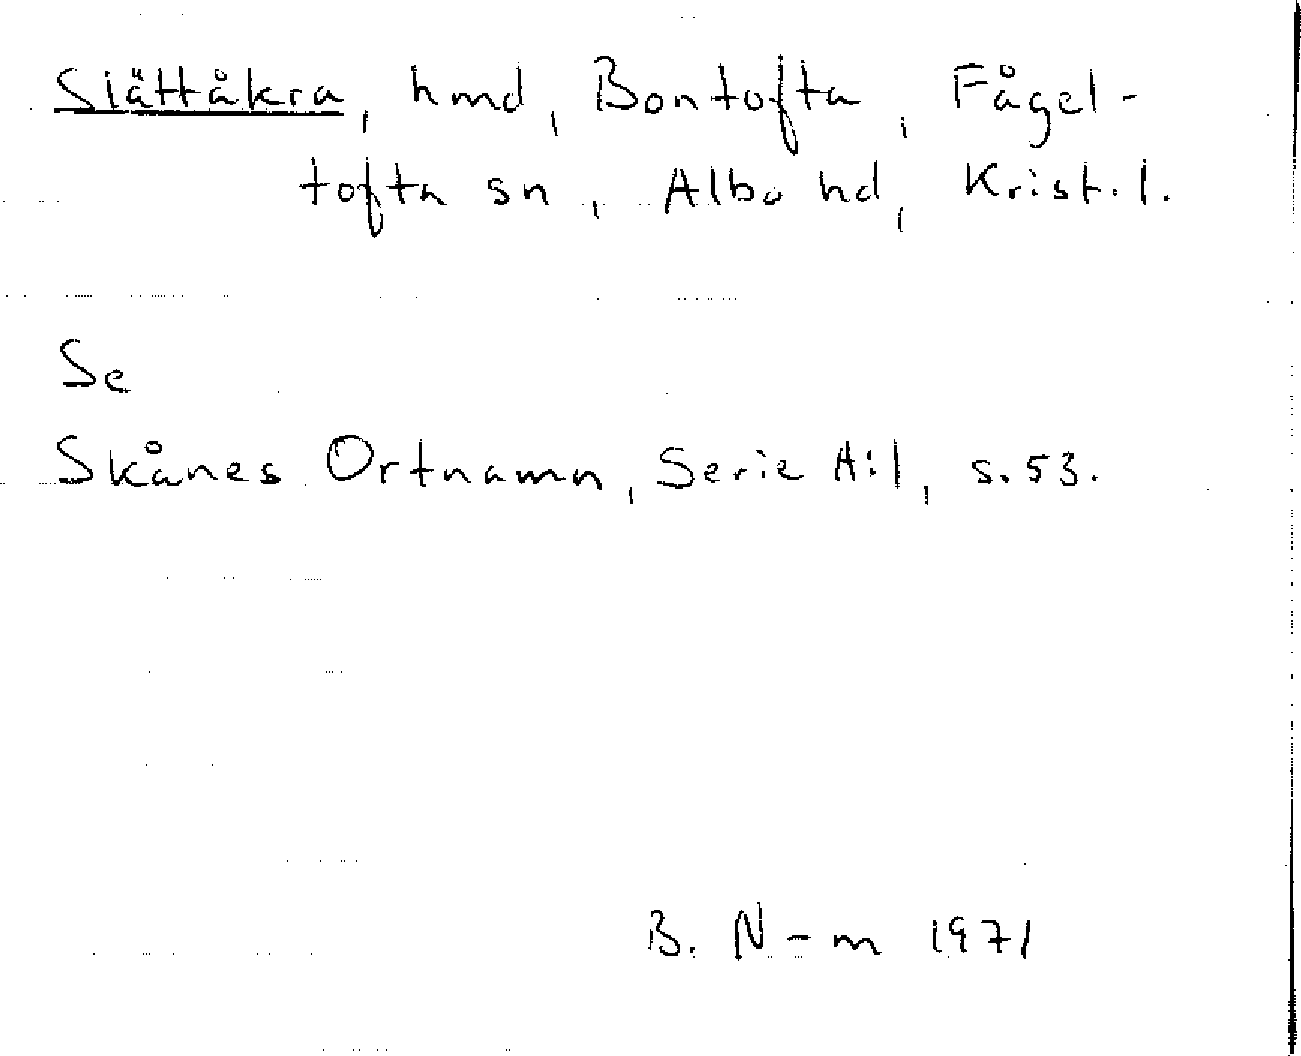 Slättåkra, hmd, Bontofta, Fågel-
tofta sn, Albo hd, Krist.l.
Se
Skånes Ortnamn, Serie A:1, s.53.
B. N-m 1971